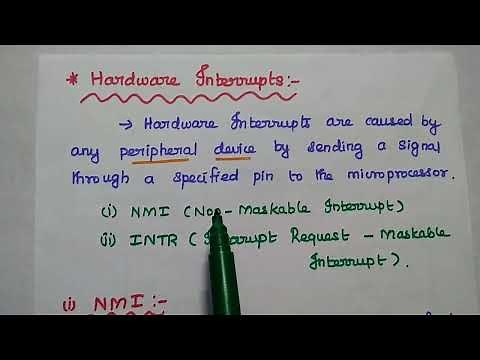 * Hardware Interrupts:-
→ Hardware Interrupts are caused by
any peripheral device by sending a signal
through a specified pin to the microprocessor.
(i) NMI (Non-Maskable Interrupt)
(ii) INTR (Interrupt Request - Maskable
Interrupt).
(i) NMI :-